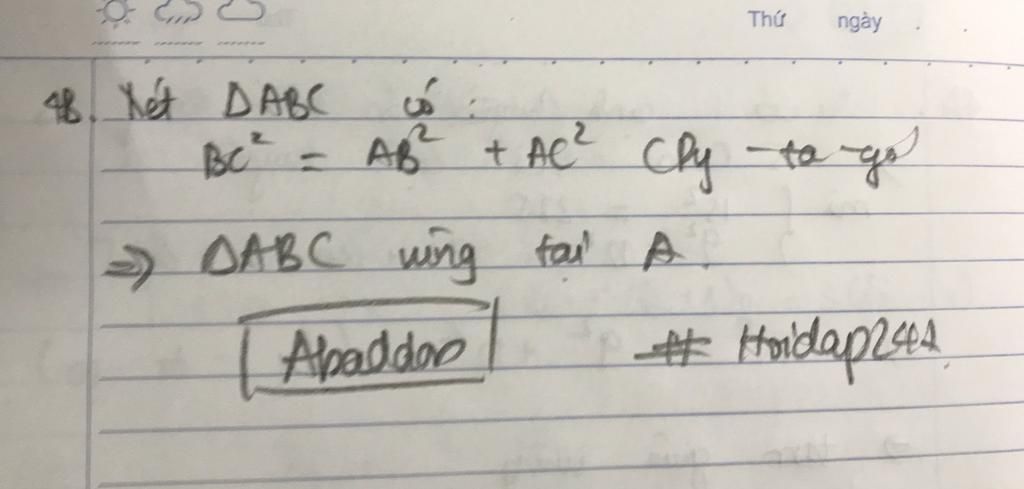 Thứ ngày . .
4B. Xét ΔABC có :
BC² = AB² + AC² (Py-ta-go)
=> ΔABC vuông tại A.
Abaddon
# Hoidap247